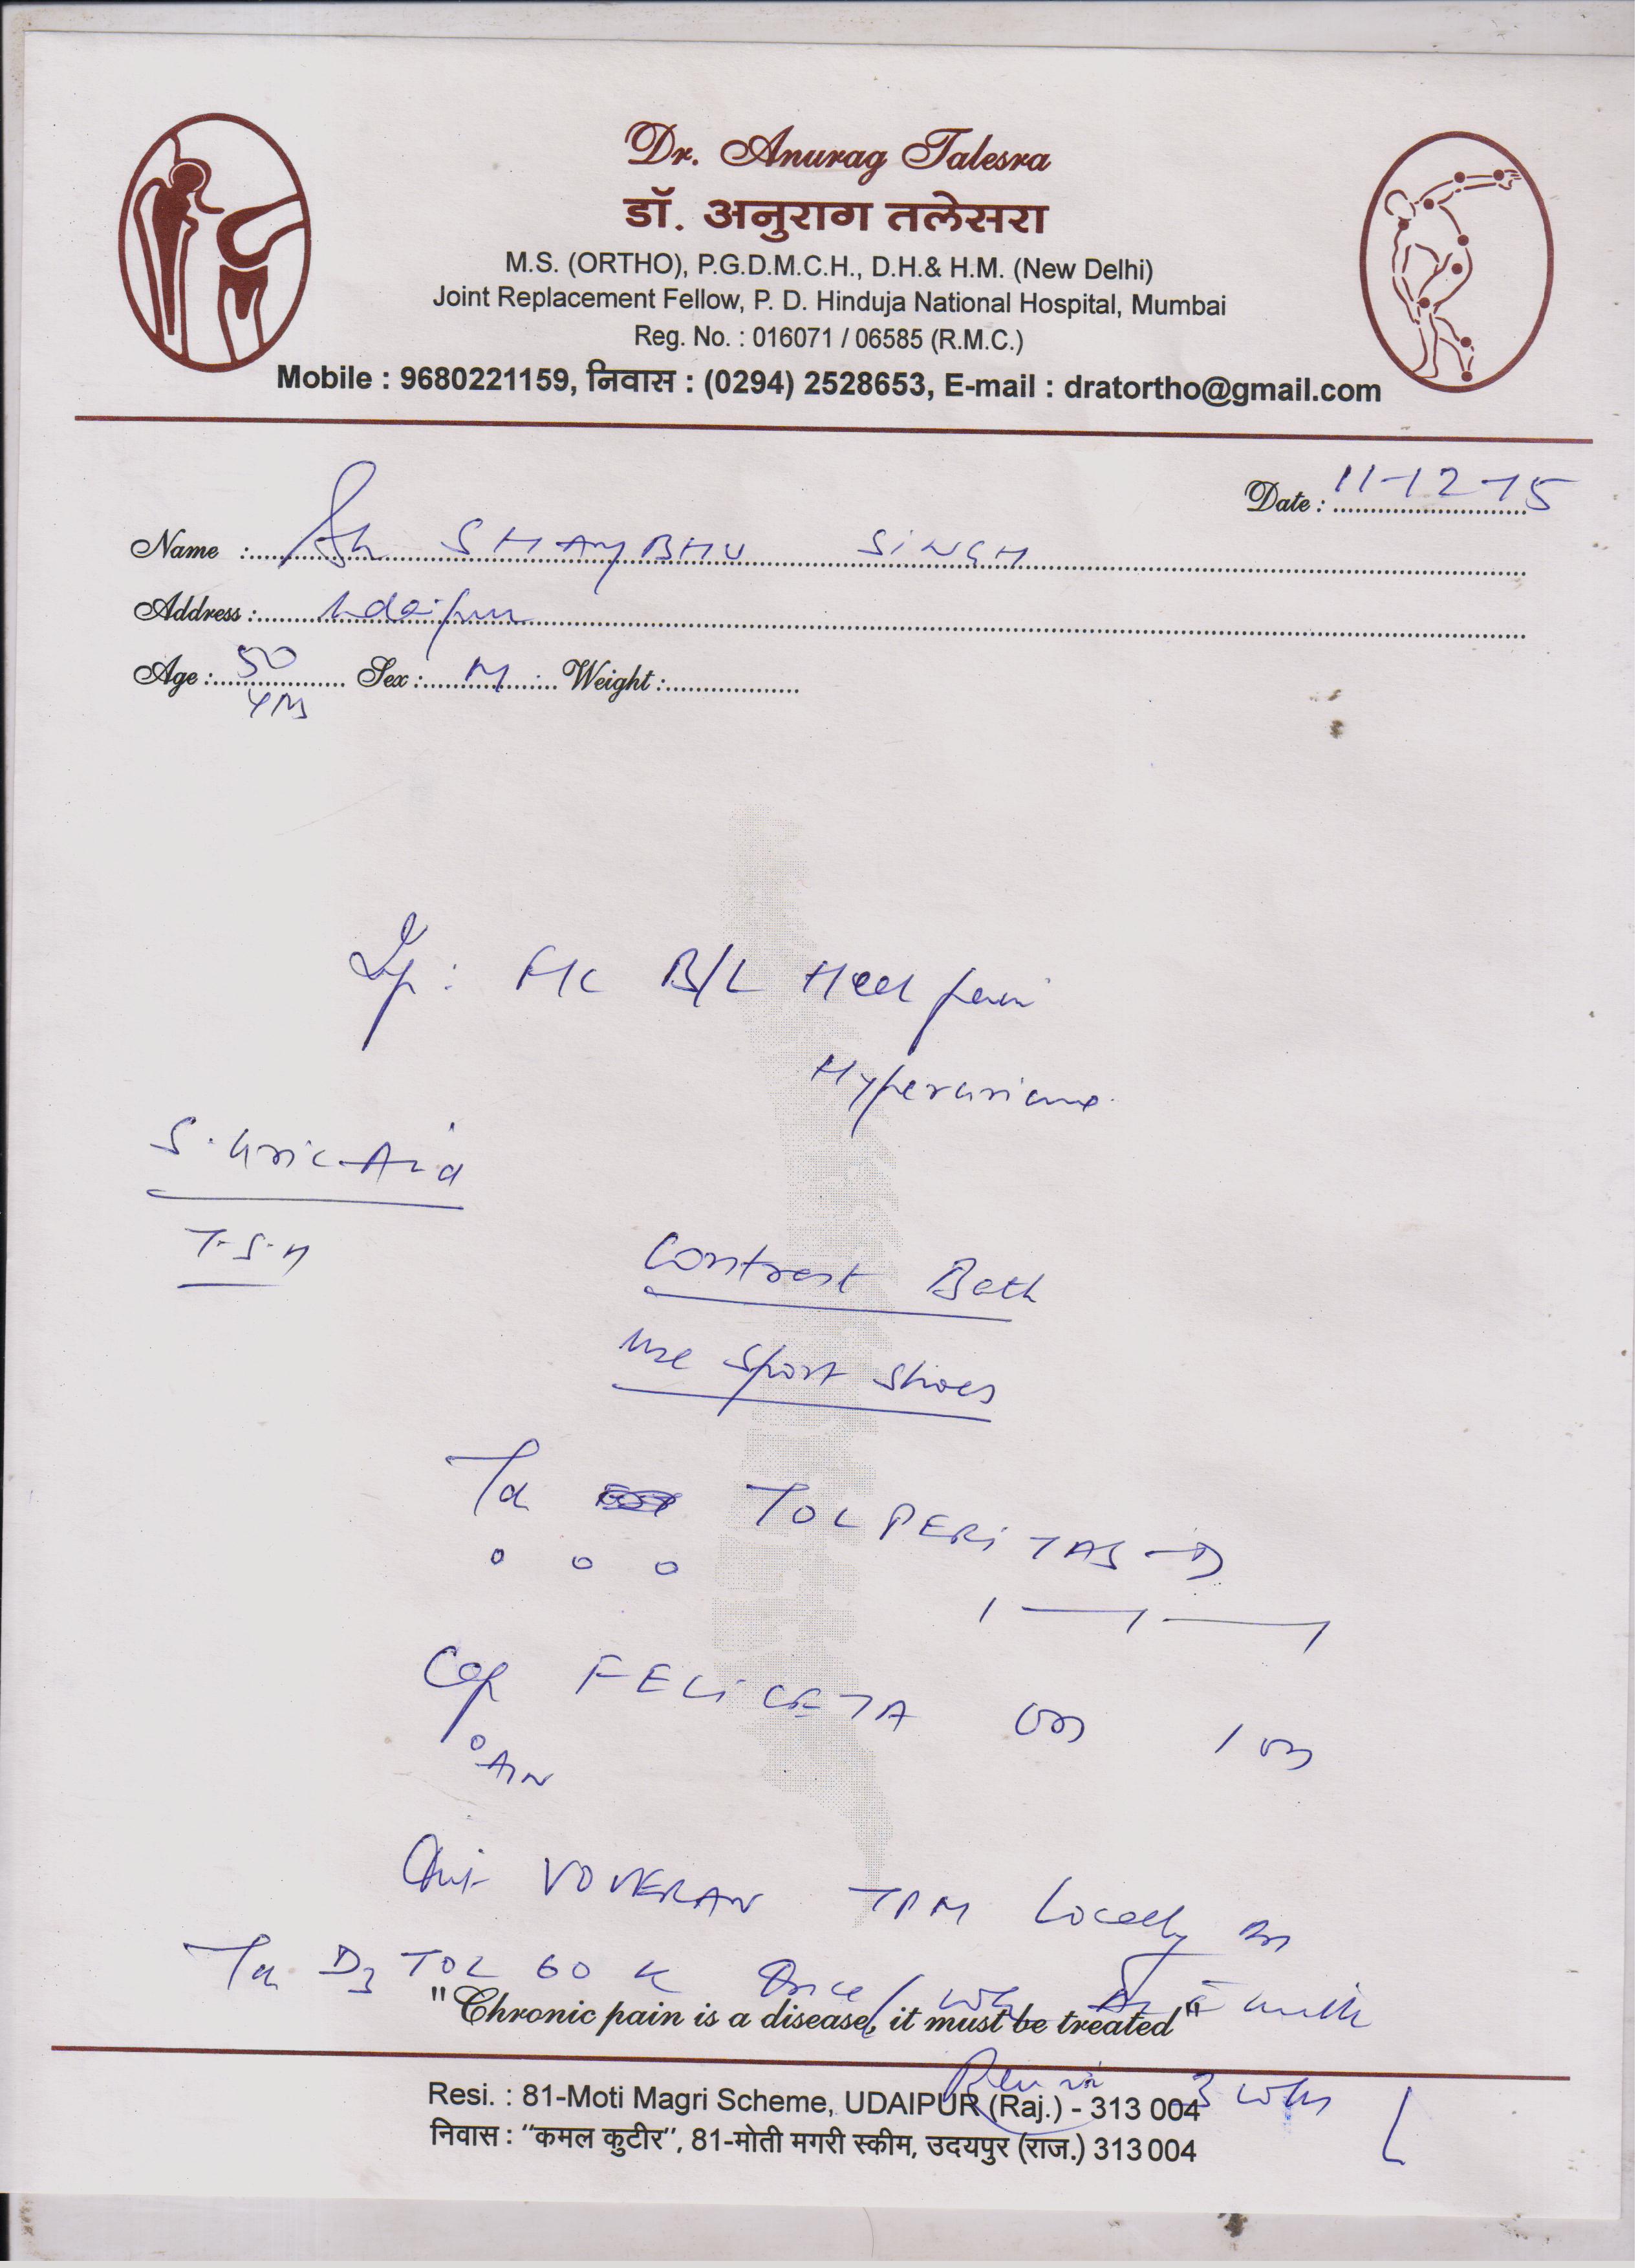 Dr. Anurag Talesra
डॉ. अनुराग तलेसरा
M.S. (ORTHO), P.G.D.M.C.H., D.H.& H.M. (New Delhi)
Joint Replacement Fellow, P. D. Hinduja National Hospital, Mumbai
Reg. No. : 016071 / 06585 (R.M.C.)
Mobile : 9680221159, निवास : (0294) 2528653, E-mail : dratortho@gmail.com
Date : 11-12-15
Name : Sh SHAMBHU SINGH
Address : Udaipur
Age : 50 Yrs Sex : M Weight :
B/L Heel pain
S. Uric Acid
T.S.H
Contrast Bath
Use Sport Shoes
TOLPERITAS-D
1 — 1 — 1
Cap FELICETA OD
Oint VOVERAN TPM Locally
D3 TOL 60 K Once / wk milk
"Chronic pain is a disease, it must be treated"
Review 3 wks
Resi. : 81-Moti Magri Scheme, UDAIPUR (Raj.) - 313 004
निवास : "कमल कुटीर", 81-मोती मगरी स्कीम, उदयपुर (राज.) 313 004